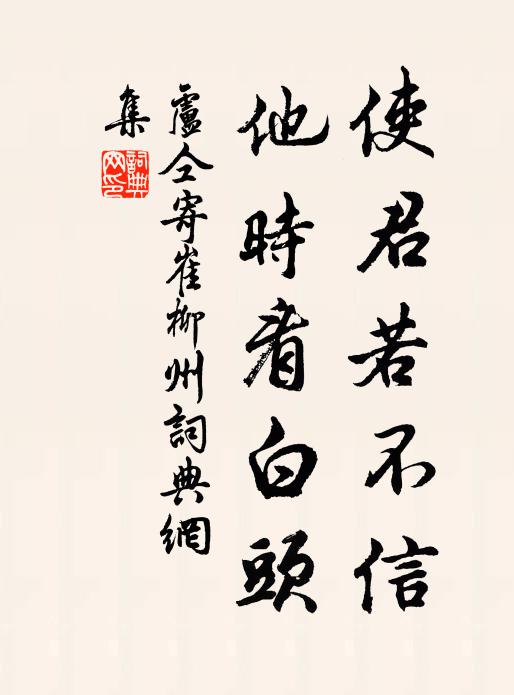 使君若不信
他時看白頭
盧仝寄崔柳州詞典網
集
詞典
网印